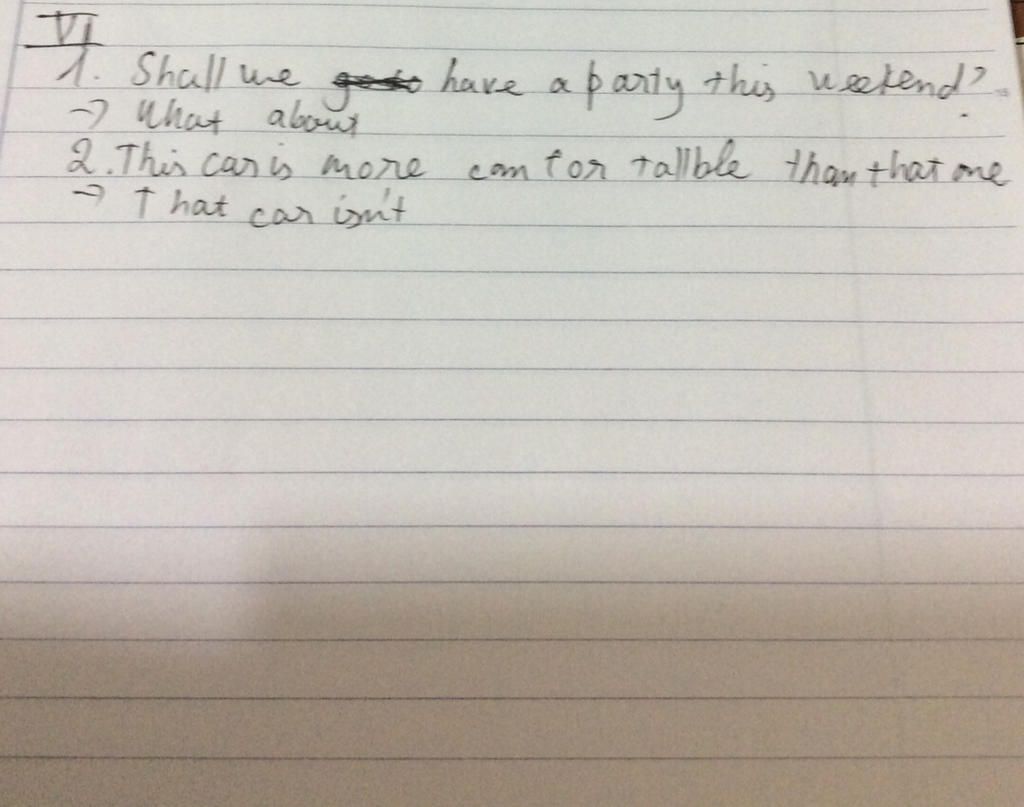 VI
1. Shall we have a party this weekend?
→ What about
2. This car is more comfortallble than that one
→ That car isn't